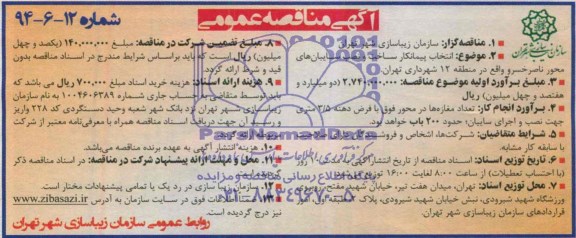 آگهی مناقصه عمومی
شماره ۱۲-۶-۹۴
۱. مناقصه‌گزار: سازمان زیباسازی شهر تهران
۲. موضوع: انتخاب پیمانکار ساخت سایبان‌های
محور ناصرخسرو واقع در منطقه ۱۲ شهرداری تهران
۳. مبلغ برآورد اولیه موضوع مناقصه: ۲.۷۴۰.۰۰۰.۰۰۰ (دو میلیارد و
هفتصد و چهل میلیون) ریال
۴. برآورد انجام کار: تعداد مغازه‌ها در محور فوق با فرض دهنه ۳/۵ متری
جهت نصب و اجرای سایبان؛ حدود ۲۰۰ باب خواهد بود.
۵. شرایط متقاضیان: شرکت‌ها، اشخاص و
با سابقه کار مشابه.
۶. تاریخ توزیع اسناد: اسناد مناقصه از تاریخ انتشار آگهی روز
(با احتساب تعطیلات) از ساعت ۸:۰۰ لغایت ۱۶:۰۰
۷. محل توزیع اسناد: تهران، میدان هفت تیر، خیابان شهید مفتح
ورزشگاه شهید شیرودی، نبش خیابان شهید شیرودی، پلاک امور
قراردادهای سازمان زیباسازی شهر تهران.
۸. مبلغ تضمین شرکت در مناقصه: مبلغ ۱۴۰.۰۰۰.۰۰۰ (یکصد و چهل
میلیون) ریال است که باید براساس شرایط مندرج در اسناد مناقصه بدون
قید و شرط ارائه گردد.
۹. هزینه ارائه اسناد: هزینه خرید اسناد مبلغ ۷۰۰.۰۰۰ ریال می باشد که
باید توسط متقاضی به حساب جاری شماره ۱۰۰۴۶۰۶۳۸۹ به نام سازمان
زیباسازی شهر تهران نزد بانک شهر شعبه وحید دستگردی کد ۲۲۸ واریز
و رسید آن جهت دریافت اسناد مناقصه همراه با معرفی‌نامه معتبر از شرکت
۱۰. هزینه انتشار آگهی به عهده برنده مناقصه می‌باشد.
۱۱. محل و مهلت ارائه پیشنهاد شرکت در مناقصه: در اسناد مناقصه ذکر
۱۲. سازمان زیبا سازی در رد یک یا تمامی پیشنهادات مختار است.
۱۳. اطلاعات فوق در سایت سازمان به آدرس www.zibasazi.ir
نیز درج گردیده است.
روابط عمومی سازمان زیباسازی شهر تهران
ParsNamadData
پایگاه اطلاع رسانی مناقصه و مزایده